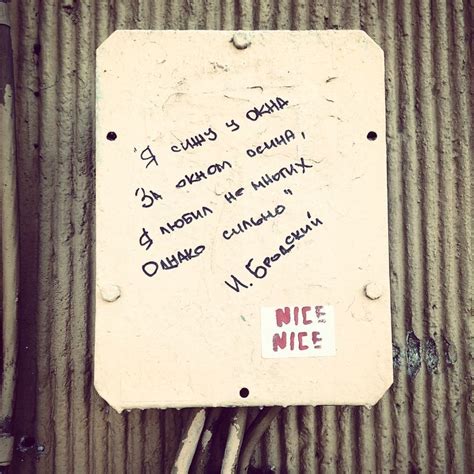 "Я сижу у окна
За окном осина,
Я любил не многих
Однако сильно"
И. Бродский
NICE
NICE